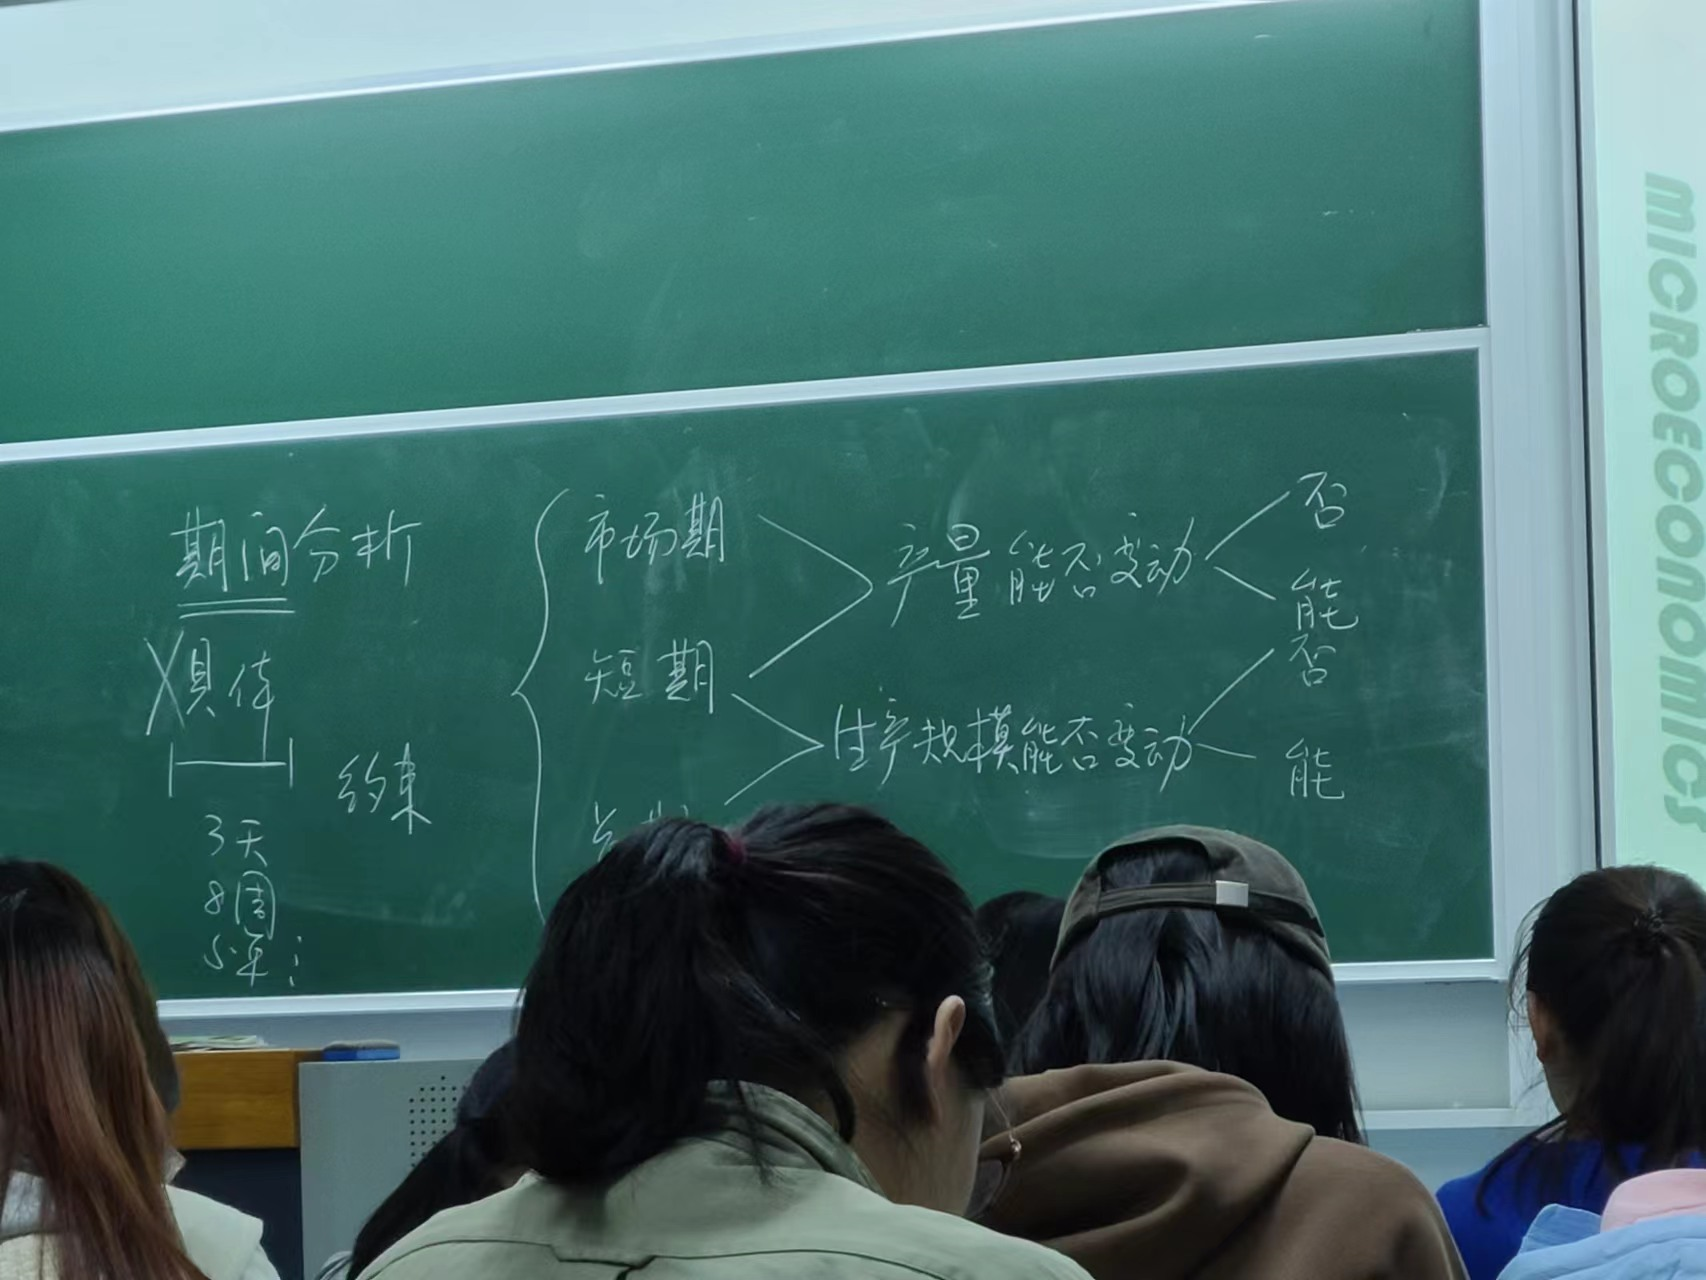 期间分析
X具体
约束
3天
8周
5年
市场期
短期
产量能否变动
否
能
生产规模能否变动
否
能
MICROECONOMICS